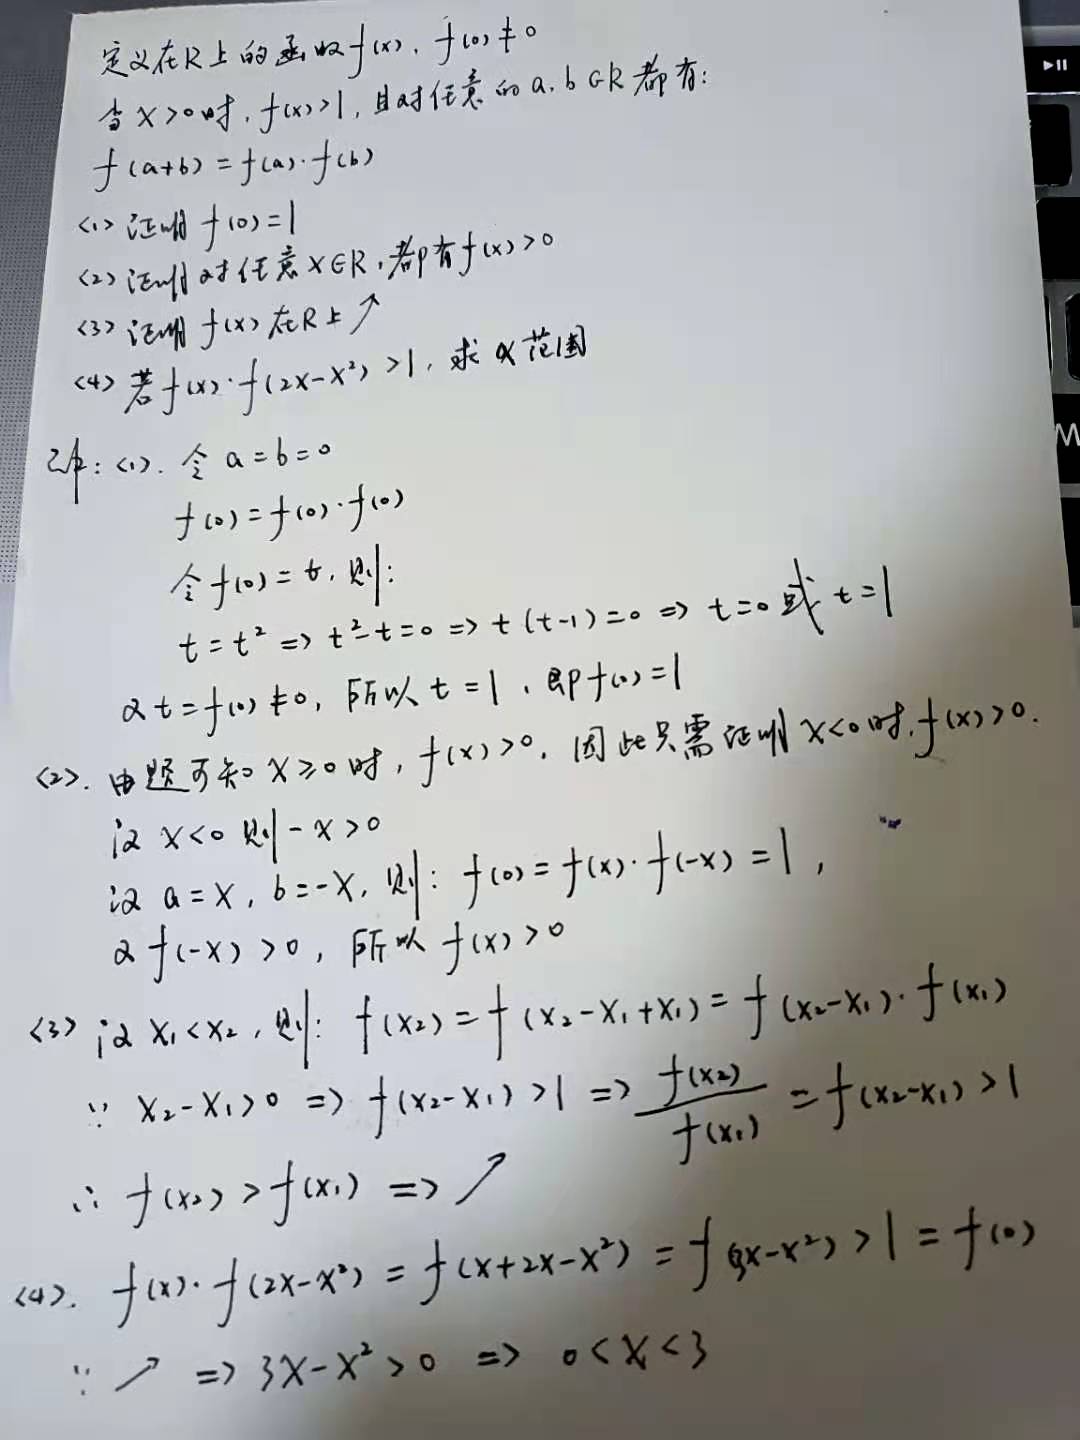 定义在R上的函数f(x), f(0)≠0
当x>0时, f(x)>1, 且对任意的a.b∈R都有:
f(a+b)=f(a)·f(b)
<1> 证明f(0)=1
<2> 证明对任意x∈R,都有f(x)>0
<3> 证明f(x)在R上↗
<4> 若f(x)·f(2x-x²)>1, 求x范围
解:<1>. 令a=b=0
f(0)=f(0)·f(0)
令f(0)=t, 则:
t=t²⇒t²-t=0⇒t(t-1)=0⇒t=0或t=1
又t=f(0)≠0, 所以t=1, 即f(0)=1
<2>. 由题可知x≥0时, f(x)>0, 因此只需证明x<0时,f(x)>0.
设x<0则-x>0
设a=x, b=-x, 则: f(0)=f(x)·f(-x)=1,
又f(-x)>0, 所以f(x)>0
<3> 设x₁<x₂, 则: f(x₂)=f(x₂-x₁+x₁)=f(x₂-x₁)·f(x₁)
∵ x₂-x₁>0⇒f(x₂-x₁)>1⇒f(x₂)/f(x₁)=f(x₂-x₁)>1
∴ f(x₂)>f(x₁)⇒↗
<4>. f(x)·f(2x-x²)=f(x+2x-x²)=f(3x-x²)>1=f(0)
∵ ↗⇒3x-x²>0⇒0<x<3
M